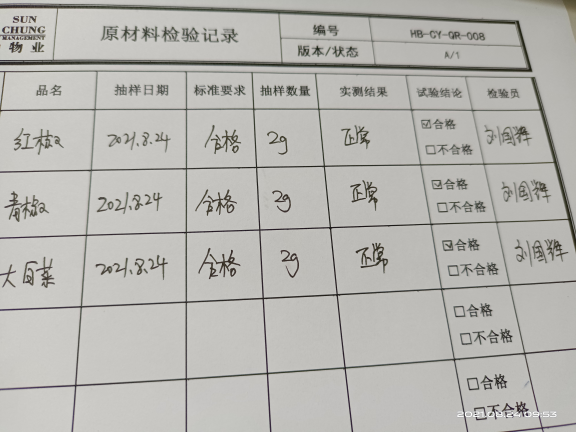 SUN
CHUNG
MANAGEMENT
物业
原材料检验记录
编号 HB-CY-QR-008
版本/状态 A/1
品名 抽样日期 标准要求 抽样数量 实测结果 试验结论 检验员
红椒 2021.8.24 合格 2g 正常 ☑合格 □不合格 刘国辉
青椒 2021.8.24 合格 2g 正常 ☑合格 □不合格 刘国辉
大白菜 2021.8.24 合格 2g 正常 ☑合格 □不合格 刘国辉
□合格
□不合格
□合格
□不合格
2021.08.24 09:53